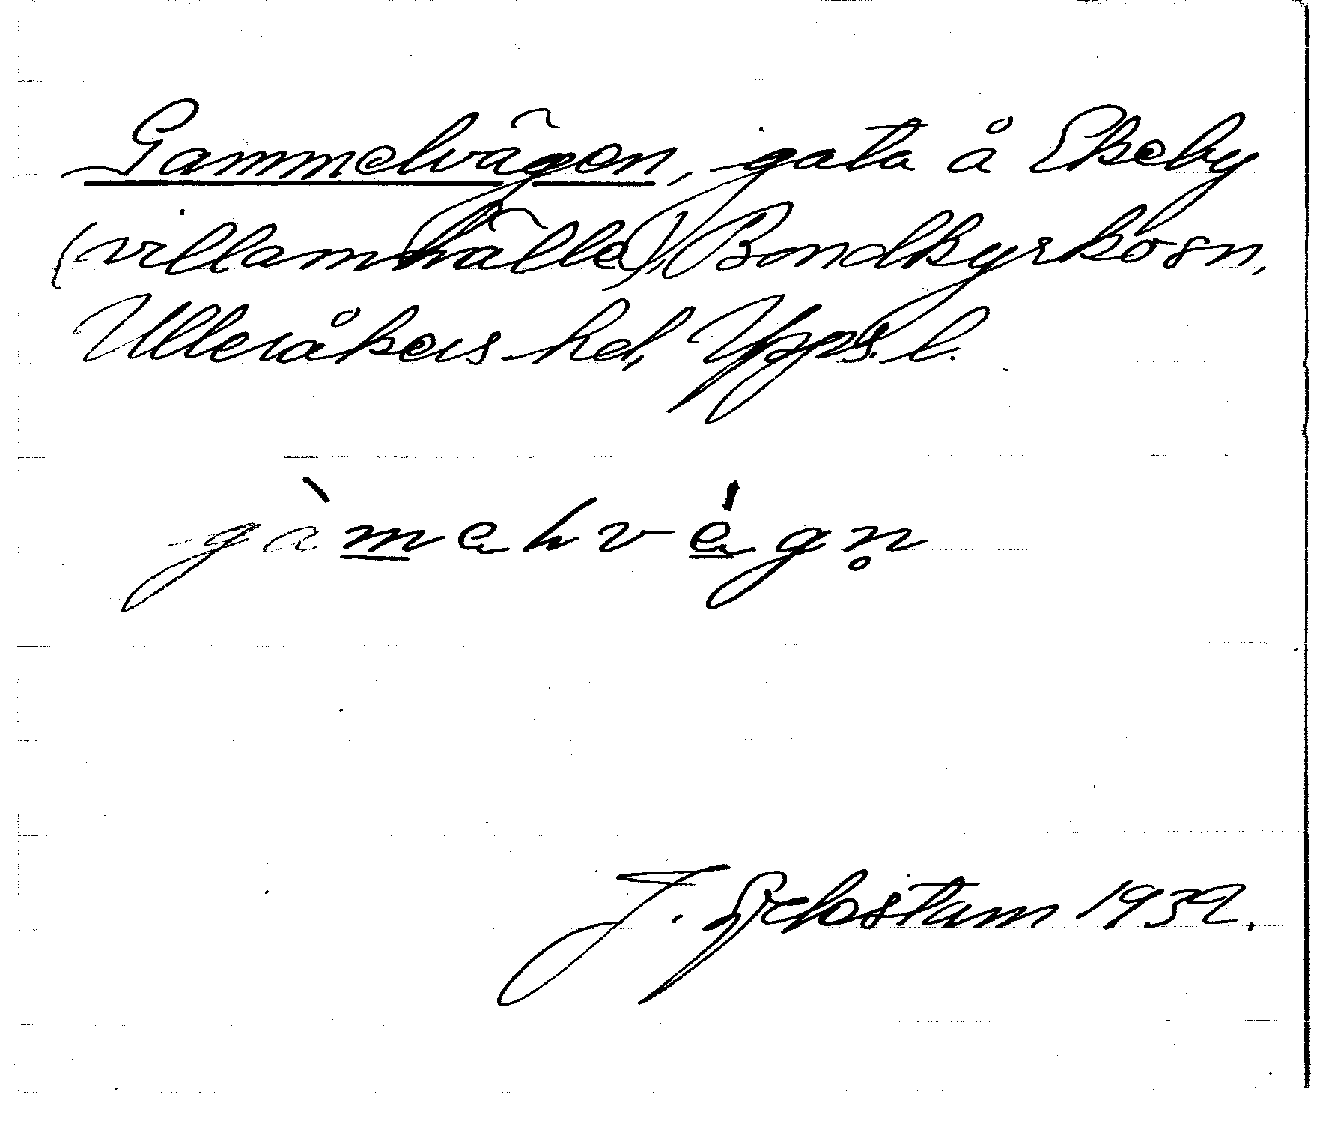 Gammelvägen, gata å Ekeby
(villamhälle), Bondkyrko sn,
Ulleråkers hd, Upps. l.
gàmalvǽgn̥
J. Sahlström 1932.